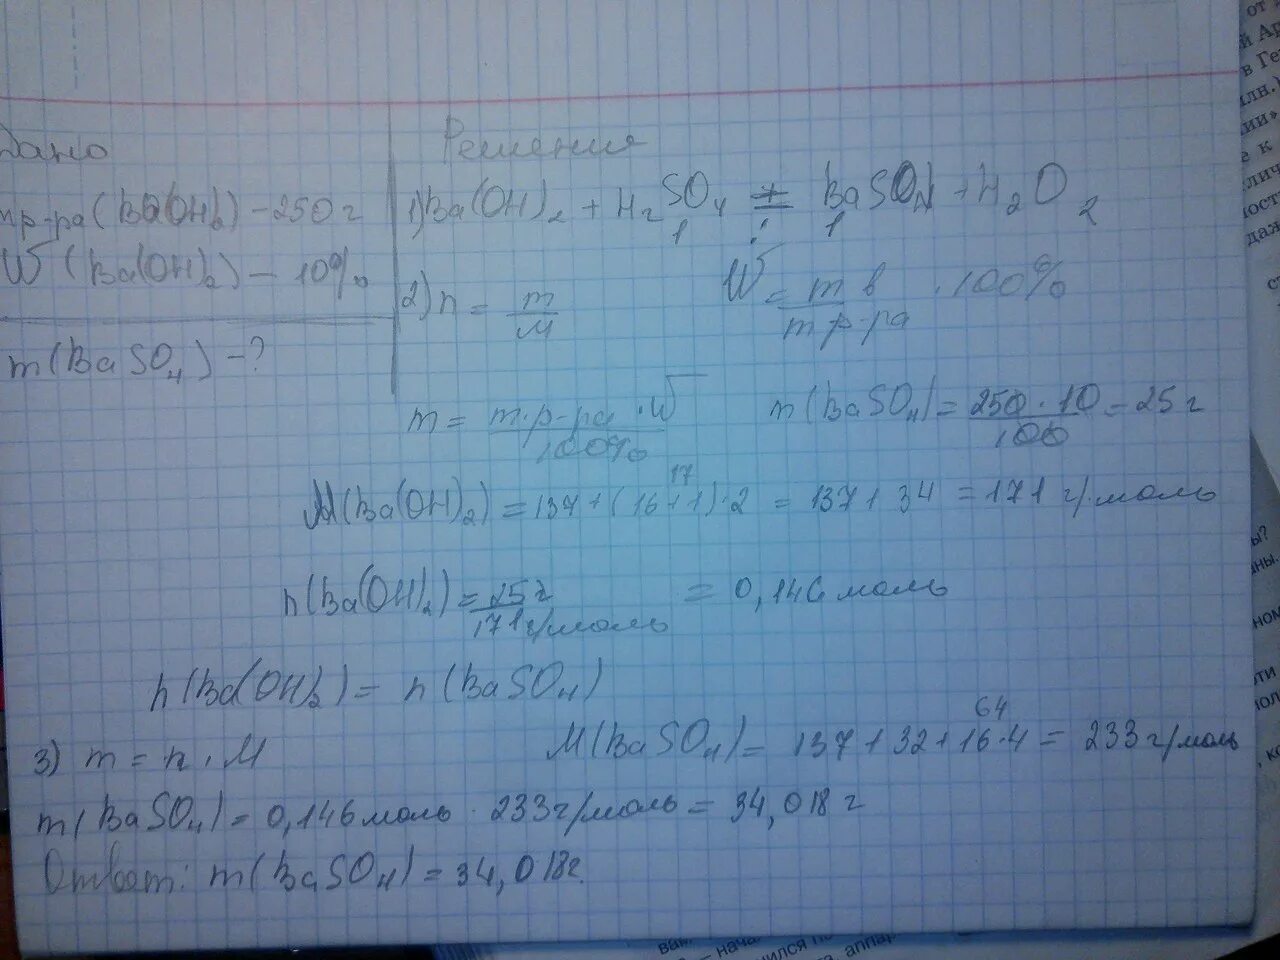 Дано
m р-ра (Ba(OH)2) - 250 г
W (Ba(OH)2) - 10%
m (BaSO4) - ?
Решения
1) Ba(OH)2 + H2SO4 = BaSO4 + H2O2
1 : 1
2) n = m/M W = m в / m р-ра · 100%
m = m р-ра · W / 100% m (BaSO4) = 250 · 10 / 100 = 25 г
17
M (Ba(OH)2) = 137 + (16 + 1) · 2 = 137 + 34 = 171 г/моль
n (Ba(OH)2) = 25 г / 171 г/моль = 0,146 моль
n (Ba(OH)2) = n (BaSO4)
64
3) m = n · M M (BaSO4) = 137 + 32 + 16 · 4 = 233 г/моль
m (BaSO4) = 0,146 моль · 233 г/моль = 34,018 г
Ответ: m (BaSO4) = 34,018 г